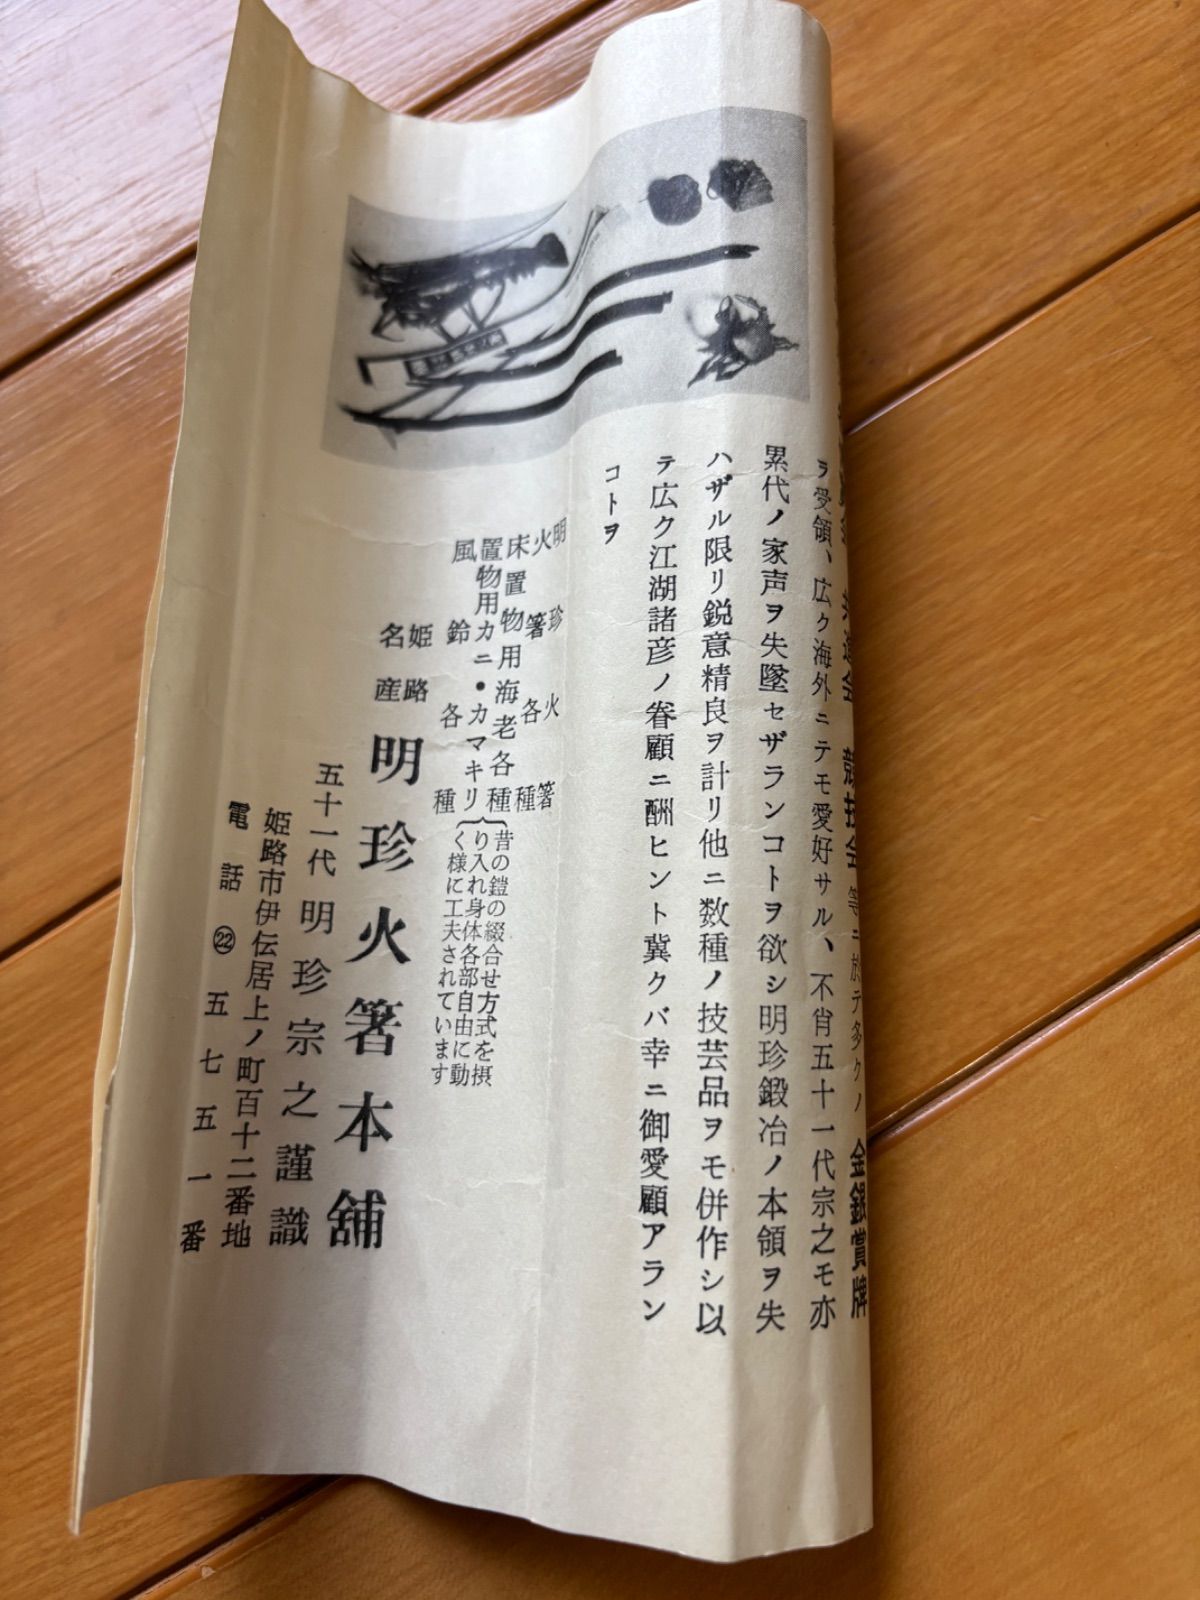 競技会等ニ於テ多クノ金銀賞牌
ヲ受領、広ク海外ニテモ愛好サル、不肖五十一代宗之モ亦
累代ノ家声ヲ失墜セザランコトヲ欲シ明珍鍛冶ノ本領ヲ失
ハザル限リ鋭意精良ヲ計リ他ニ数種ノ技芸品ヲモ併作シ以
テ広ク江湖諸彦ノ眷顧ニ酬ヒント冀クバ幸ニ御愛顧アラン
コトヲ
明珍火箸
火箸各種
床置物用海老各種
置物用カニ・カマキリ
風鈴各種
昔の鎧の綴合せ方式を摂
り入れ身体各部自由に動
く様に工夫されています
姫路
名産
明珍火箸本舗
五十一代 明珍宗之謹識
姫路市伊伝居上ノ町百十二番地
電話㉒五七五一番